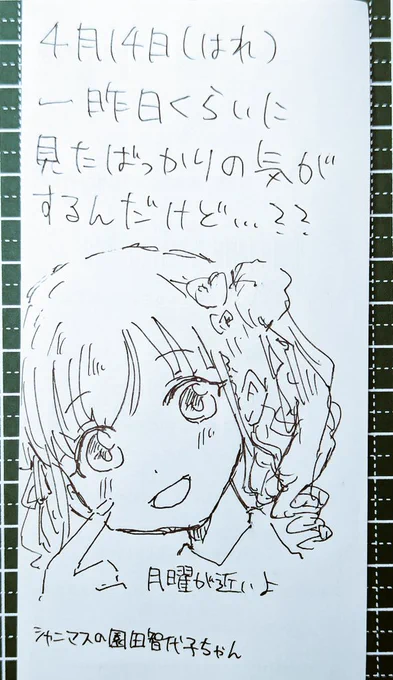 4月14日(はれ)
一昨日くらいに
見たばっかりの気が
するんだけど...??
月曜が近いよ
シャニマスの園田智代子ちゃん